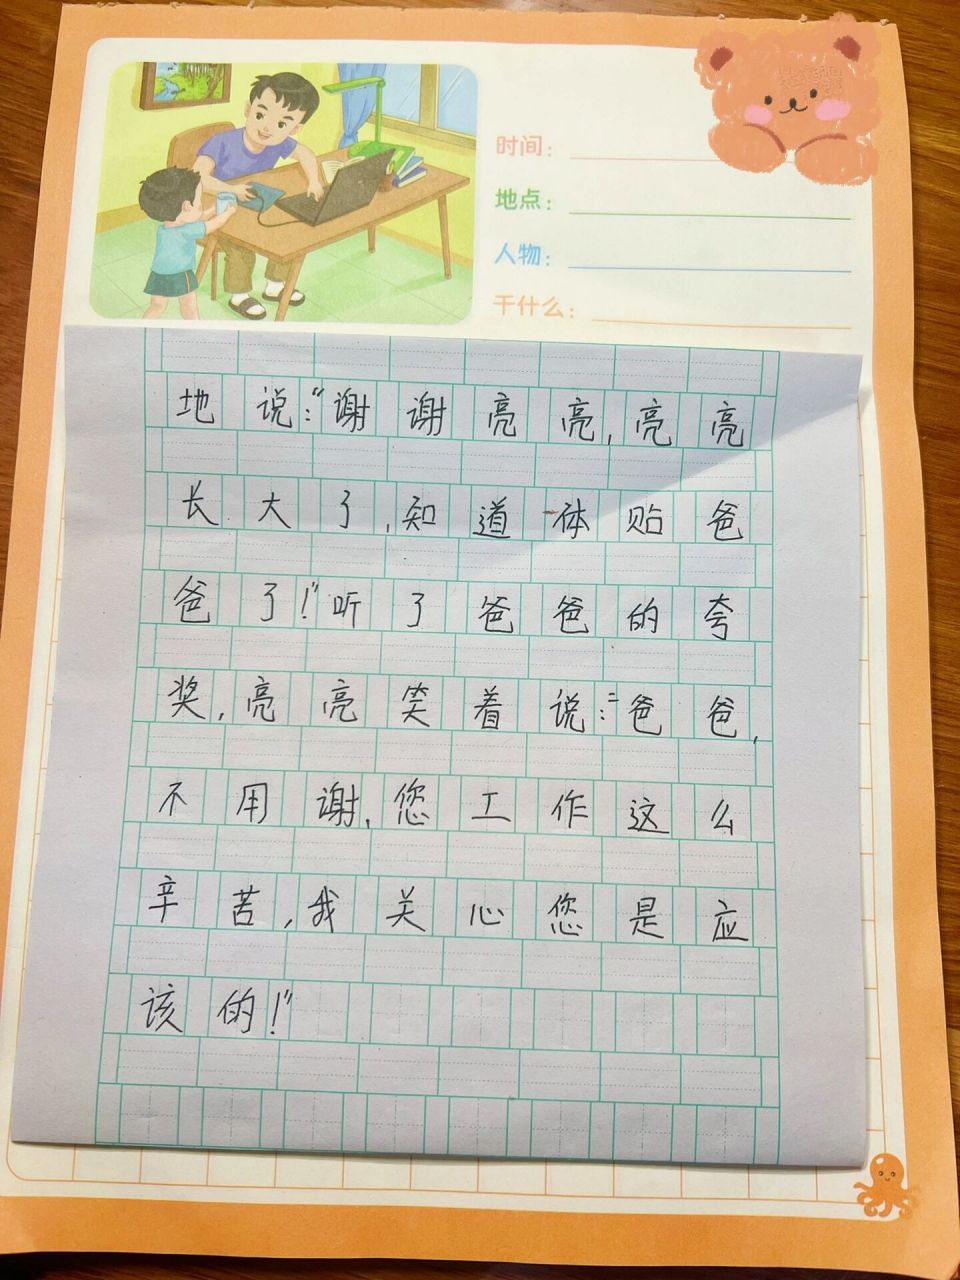 时间：
地点：
人物：
干什么：
地说：“谢谢亮亮，亮亮
长大了，知道体贴爸
爸了！”听了爸爸的夸
奖，亮亮笑着说：“爸爸，
不用谢，您工作这么
辛苦，我关心您是应
该的！”